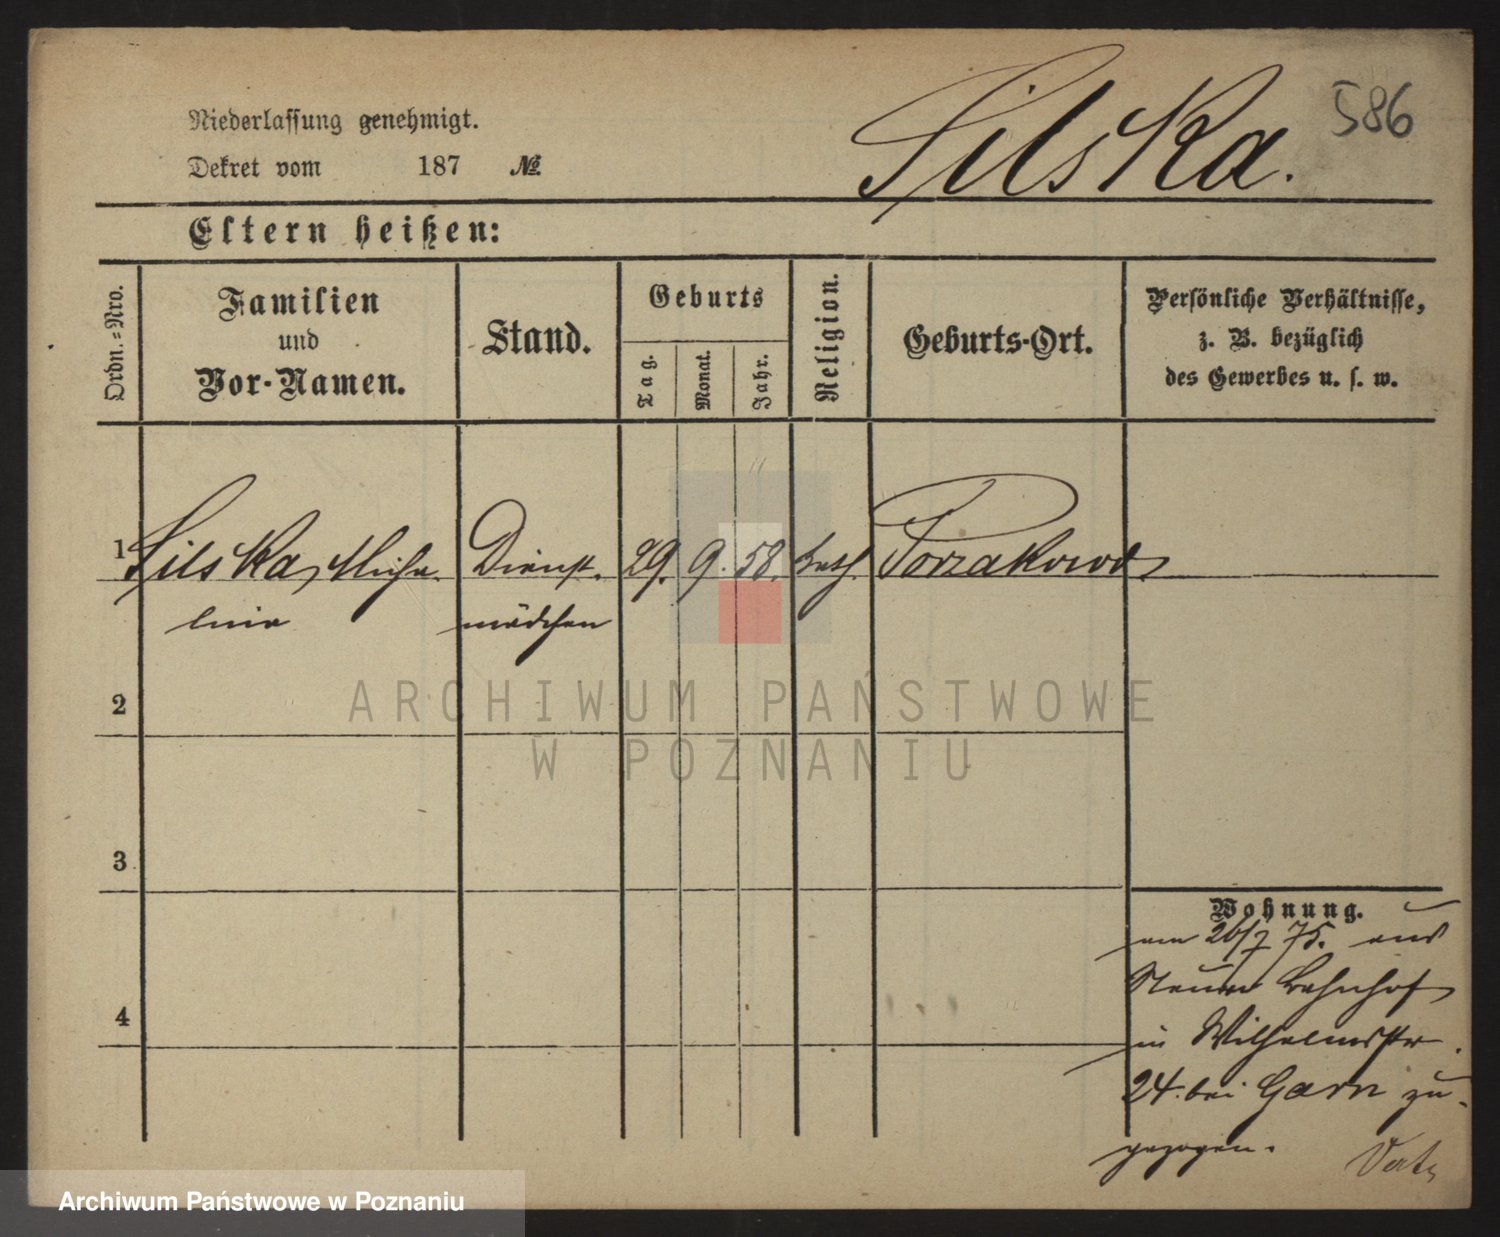 586
Silska.
Niederlassung genehmigt.
Dekret vom 187 №
Eltern heißen:
Ordn.=Nro.
Familien
und
Vor-Namen.
Stand.
Geburts
Tag.
Monat.
Jahr.
Religion.
Geburts-Ort.
Persönliche Verhältnisse,
z. B. bezüglich
des Gewerbes u. s. w.
1 Silska, Dienst- 29. 9. 58. kath.
mädchen
2
3
4
Wohnung.
am 26/7 75. aus
Bahnhof
in Wilhelmstr.
24. bei Garn zu-
gezogen.
ARCHIWUM PAŃSTWOWE
W POZNANIU
Archiwum Państwowe w Poznaniu